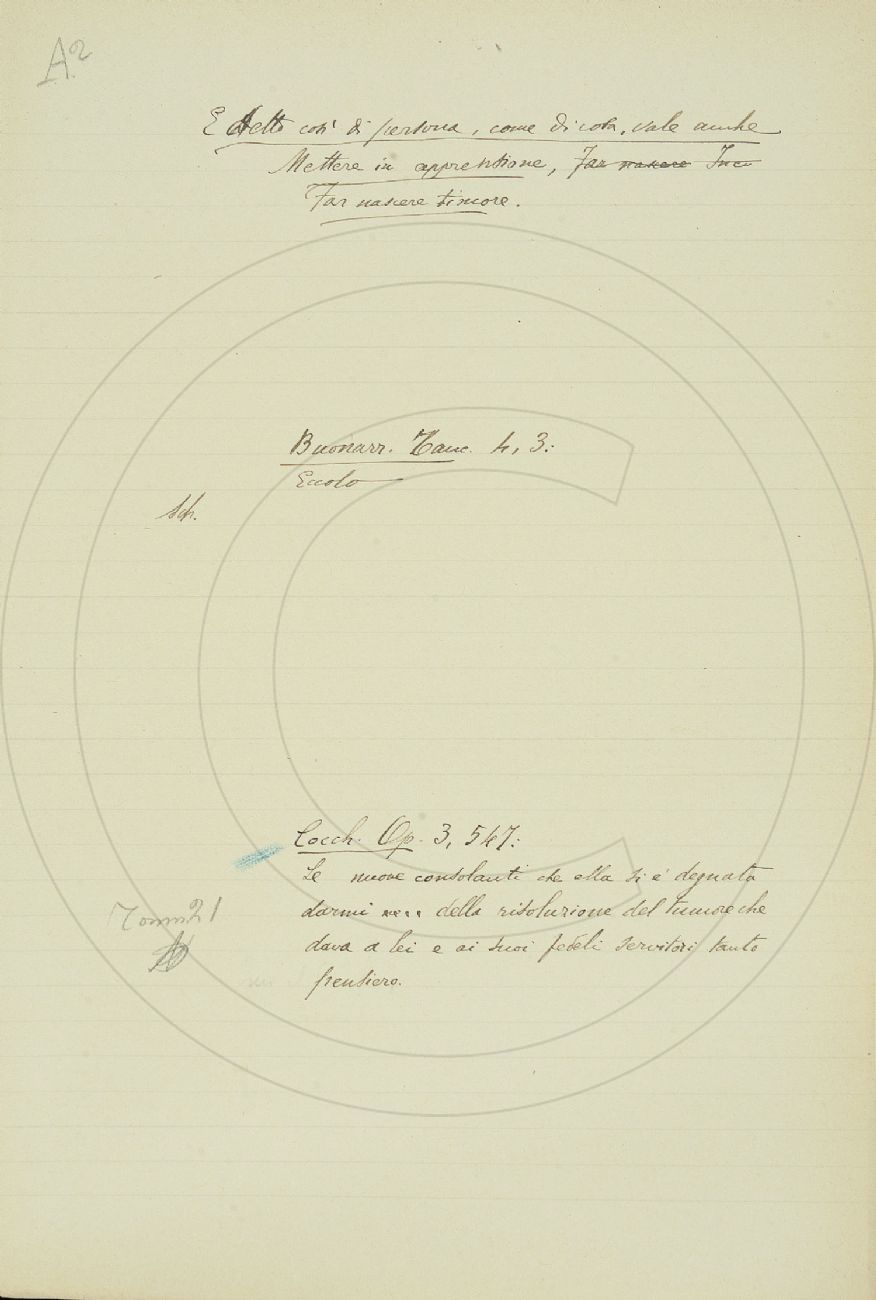 A²
E detto così di persona, come di cosa, vale anche
Mettere in apprensione, Far nascere
Far nascere timore.
Buonarr. Tanc. 4, 3:
Eccolo
Sch.
Cocch. Op. 3, 547:
Le nuove consolanti che ella si è degnata
darmi .... della risoluzione del tumore che
dava a lei e ai suoi fedeli servitori tanto
pensiero.